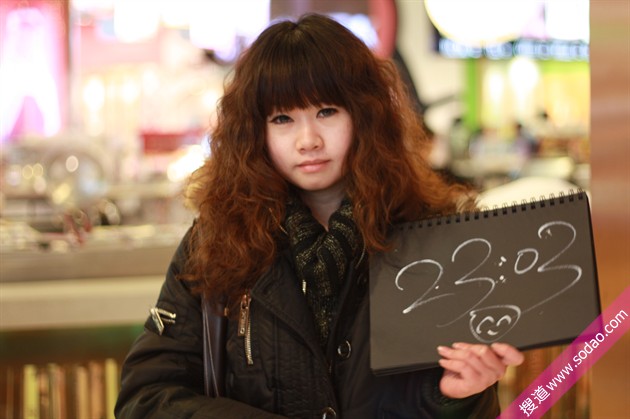 23:03
搜道www.sodao.com